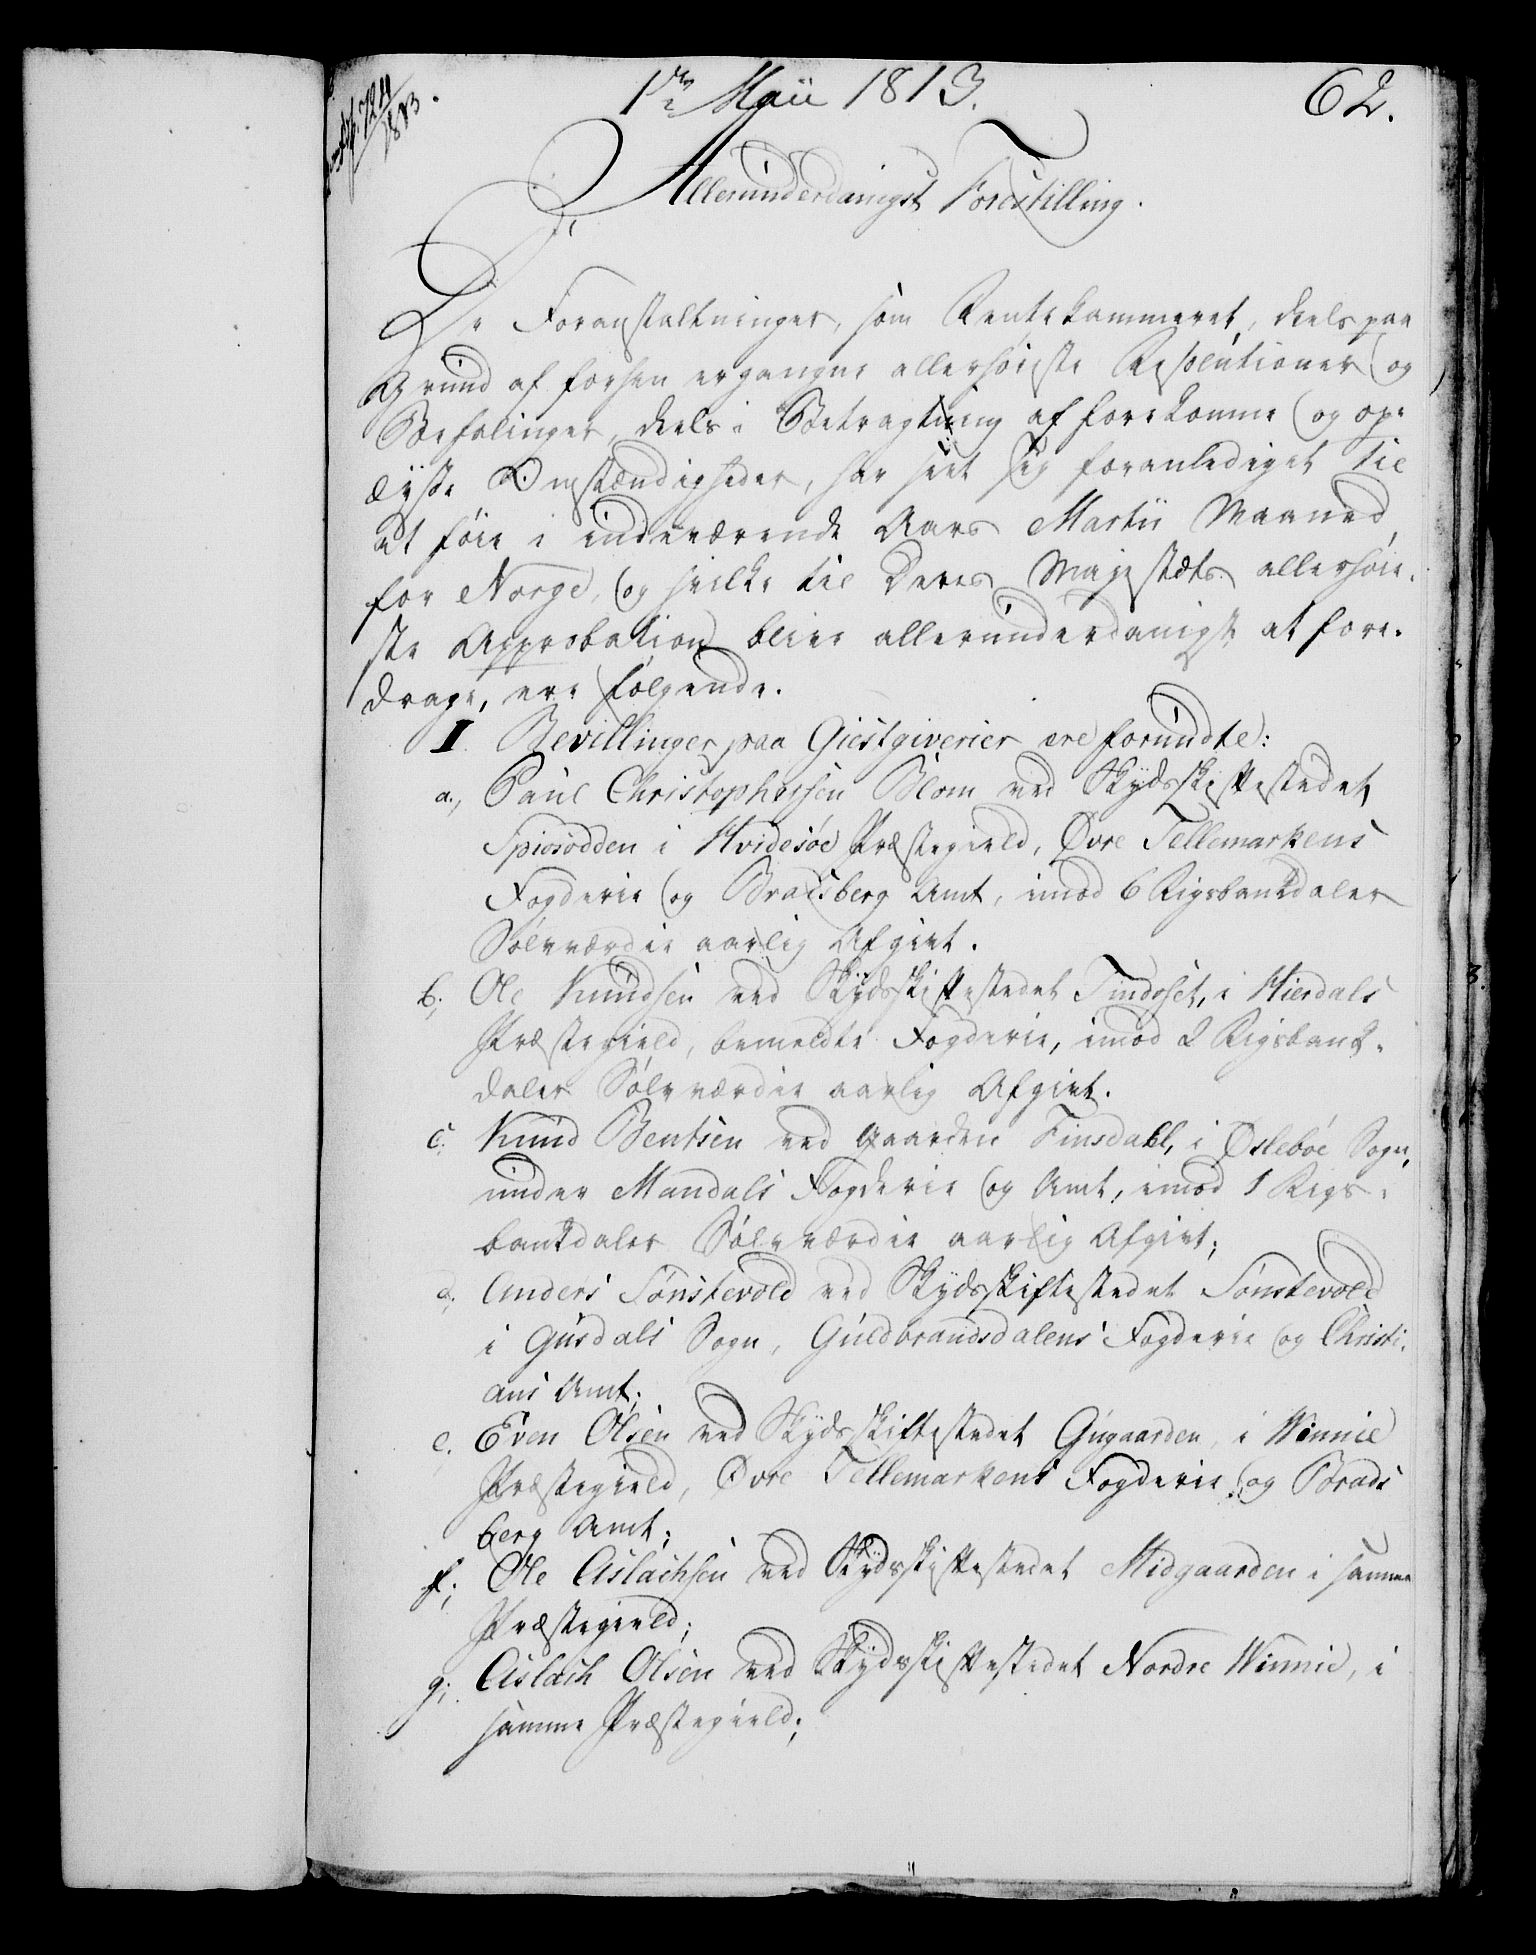 724
1813.
1ste Maii 1813.
62.
Allerunderdanigst Forestilling.
De Foranstaltninger, som Rentekammeret, deels paa
Grund af forhen ergangne allerhøieste Resolutioner og
Befalinger, deels i Betragtning af forekomne og op-
lyste Omstændigheder, har seet sig foranlediget til
at føie i indeværende Aars Martii Maaned
for Norge, og hvilke til Deres Majestæts allerhøie-
ste Approbation blive allerunderdanigst at fore-
drage, ere følgende.
I. Bevillinger paa Giestgiverier ere forundte:
a., Paul Christophersen Blom ved Skydsskiftestedet
Spiosodden i Hvidesøe Præstegield, Øvre Tellemarkens
Fogderie og Bradsberg Amt, imod 6 Rigsbankdaler
Sølvværdie aarlig Afgivt.
b; Ole Knudsen ved Skydsskiftestedet Tindoset, i Hierdals
Præstegield, bemeldte Fogderie, imod 2 Rigsbank-
daler Sølvværdie aarlig Afgivt.
c; Knud Bentsen ved Gaarden Finsdahl, i Øslebøe Sogn,
under Mandals Fogderie og Amt, imod 1 Rigs-
bankdaler Sølvværdie aarlig Afgivt;
d; Anders Sønstevold ved Skydsskiftestedet Sønstevold
i Gusdals Sogn, Guldbrandsdalens Fogderie og Christi-
ans Amt;
e. Even Olsen ved Skydsskiftestedet Gugaarden, i Winnie
Præstegield, Øvre Tellemarkens Fogderie og Brads
berg Amt;
f; Ole Aslachsen ved Skydsskiftestedet Midgaarden i samme
Præstegield;
g; Aslach Olsen ved Skydsskiftestedet Nordre Winnie, i
samme Præstegield;